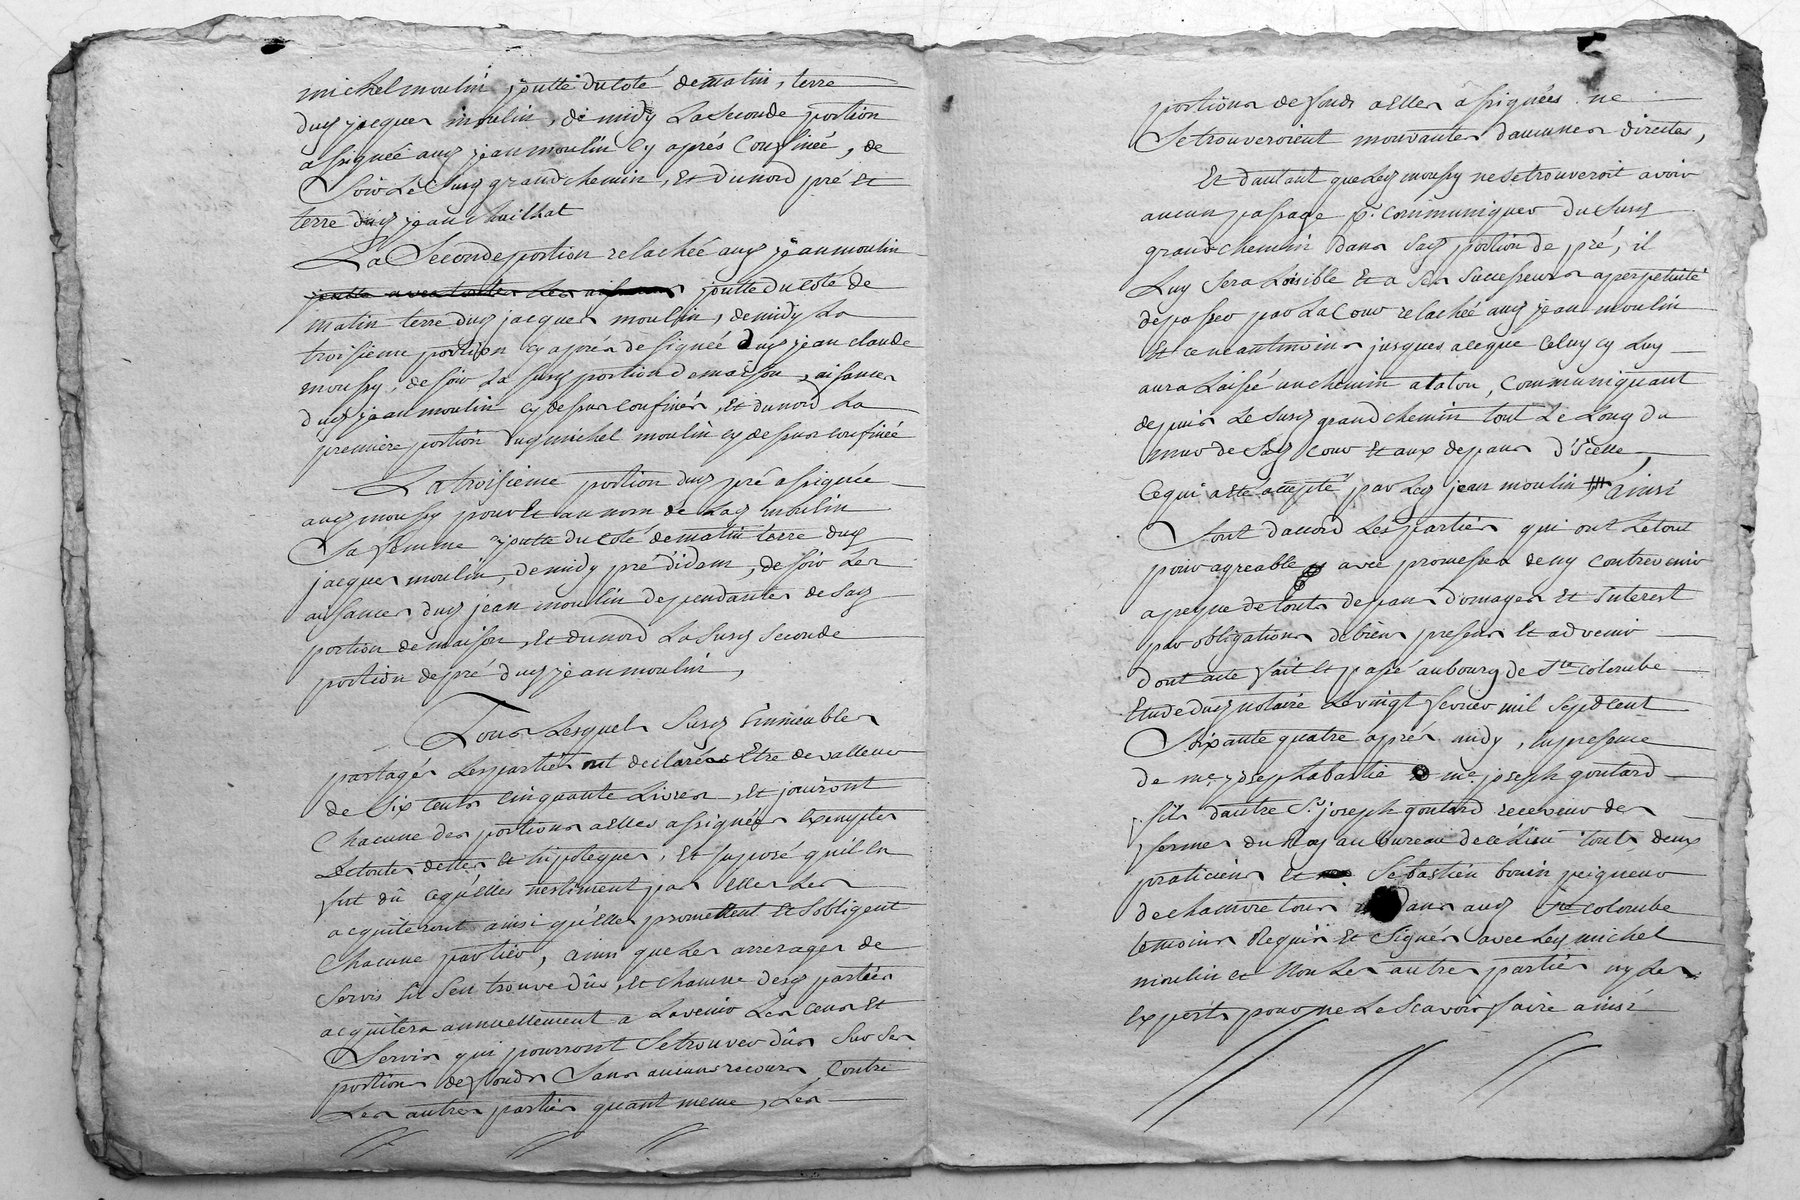 michel moulin joutte du coté de matin, terre
dud jacques moulin, de midy La seconde portion
assignée aud jean moulin cy aprés Confinée, de
Soir Le Susd grand chemin, Et du nord pré et
terre dud jean chailhat
La Seconde portion relachée aud jean moulin
joutte du coté de
matin terre dud jacques moulin, de midy La
troisieme portion cy aprés designée dud jean claude
moussy, de soir La susd portion de maison, aisances
dud jean moulin cy dessus confinés, Et du nord La
premiere portion dud michel moulin cy dessus confinée
La troisieme portion dud pré assignée
aud moussy pour Et au nom de Lad moulin
Sa femme joutte du coté de matin terre dud
jacques moulin, de midy pré didem, de soir Les
aisances dud jean moulin dependantes de Sad
portion de maison, Et du nord La Susd Seconde
portion de pré dud jean moulin,
Tous Lesquels Susd Immeubles
partagés Les parties ont declarés Etre de valleur
de Six cents cinquante Livres, Et jouiront
Chacune des portions a elles assignées Exemptes
De toutes dettes Et hipoteques, Et suposé qu'il En
fut dû ce qu'elles n'estiment pas Elles Les
acquiteront ainsi qu'elles promettent Et Sobligent
Chacune partier, ainsi que Les arrerages de
Servis s'il s'en trouve dûs, Et chacune desd parties
acquitera annuellement a Lavenir Les cens Et
Servis qui pourront Se trouver dûs Sur Ses
portions de fonds Sans aucuns recours Contre
Les autres parties quant meme, Les
portions de fonds a Elles assignées ne
Se trouveroient mouvantes daucunes directes,
Et dautant que Led moussy ne se trouveroit avoir
aucun passage p.r communiquer du Susd
grand chemin dans Sad portion de pré, il
Luy Sera Loisible Et a Ses Successeurs a perpetuité
de passer par La Cour relachée aud jean moulin
Et ce neantmoins jusques a ce que Celuy cy Luy
aura Laissé un chemin a talon, Communiquant
depuis Le Susd grand chemin tout Le Long du
mur de Sad Cour Et aux depans d'icelle,
Ce qui a Eté accepté par Led jean moulin ainsi
Sont d'accord Les parties qui ont Le tout
pour agreable avec promesses de ny contrevenir
a peyne de touts depans Domages Et Interest
par obligations de biens presens Et advenir
dont acte fait Et passé au bourg de Ste colombe
Etude dud notaire Le vingt fevrier mil Sept Cent
Soixante quatre aprés midy, En presence
de me joseph labastie me joseph goutard
fils d'autre Sr. joseph goutard receveur des
fermes du Roy au bureau de ce Lieu touts deux
praticiens et Sebastien bouin peigneur
de chamvre tous aud Ste colombe
temoins Requis Et Signés avec Led michel
moulin et Non Les autres parties ny Les
Experts pour ne Le Scavoir faire ainsi